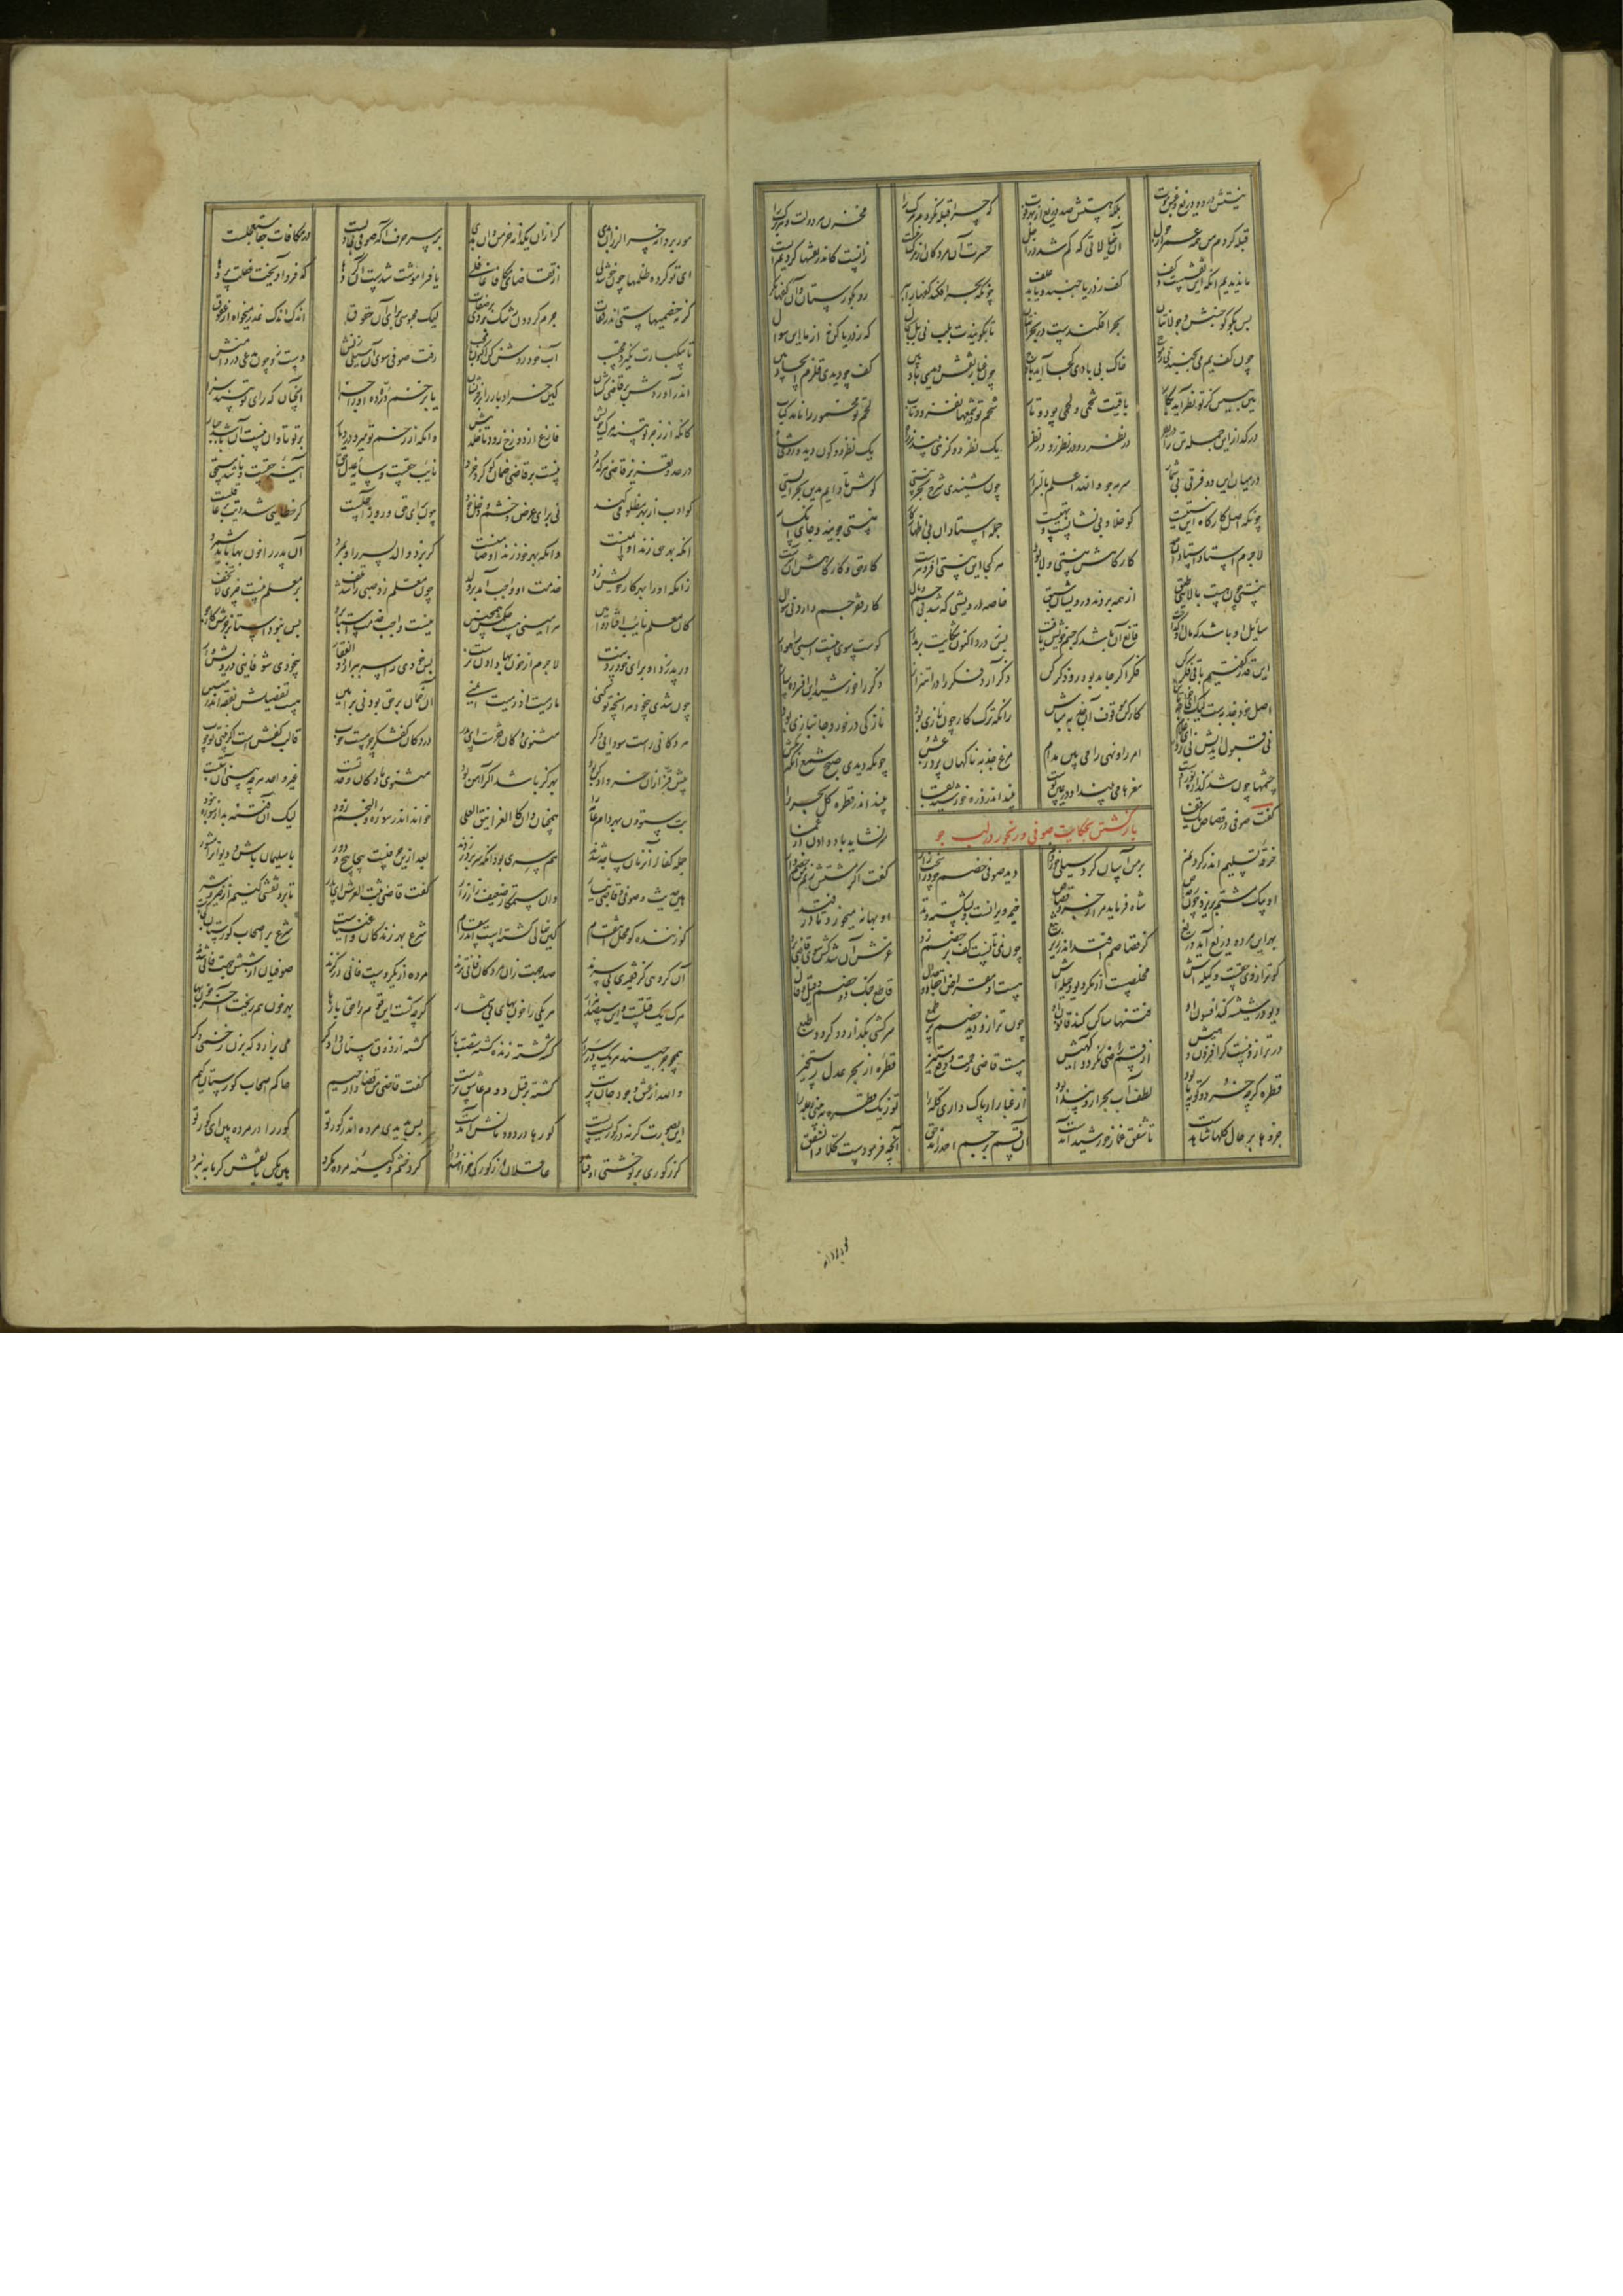 نیستش درد و دریغ و غبن موت بلکه هستش صد دریغ از بهر فوت که چرا قبله نکردم مرگ را مخزن هر دولت و هر برگ را
قبله کردم من همه عمر از حول آن خیالاتی که گم شد در اجل حسرت آن مردگان از مرگ نیست زانست کاندر نقشها کردیم ایست
ما ندیدیم آنکه این نقش است و کف کف ز دریا جنبد و یابد علف چونکه بحر افکند کفها را ببر رو بگورستان و آن کفها نگر
پس بگو کو جنبش و جولانتان بحر افکندست در بحرانتان تا بگویندت بلب نی بل بحال که ز دریا کن نه از ما این سوال
چون کف بیم می بجنبد نی ز موج خاک بی بادی کجا آید بر اوج چون غبار نقش دیدی باد بین کف چو دیدی قلزم ایجاد بین
هین ببین کز تو نظر آید بکار باقیت شحمی و لحمی پود و تار شحم تو در شمعها نفزود تاب لحم تو مخمور را نامد کباب
در گداز این جمله تن را در بصر در نظر رو در نظر رو در نظر یک نظر دو گز همی بیند ز راه یک نظر دو کون دید و روی شاه
در میان این دو فرقی بی شمار سرمه جو والله اعلم بالسرار چون شنیدی شرح بحر نیستی کوش تا دایم بدین بحر ایستی
چونکه اصل کارگاه این نیستیست کو خلا و بی نشانست و تهیست جمله استادان پی اظهار کار نیستی جویند و جای انکسار
لاجرم استاد استادان صمد کارگاهش نیستی و لا بود هر کجا این نیستی افزونترست کار حق و کارگاهش آن سرست
نیستی چون هست بالایین طبق از همه بردند درویشان سبق خاصه درویشی که شد بی جسم و مال کار فقر جسم دارد نی سوال
سایل او باشد که مال او گداخت قانع آن باشد که جسم خویش باخت پس ز درد اکنون شکایت بر مدار کوست سوی نیست اسبی راهوار
این قدر گفتیم باقی فکر کن فکر اگر جامد بود رو ذکر کن ذکر آرد فکر را در اهتزاز ذکر را خورشید این افسرده ساز
اصل خود جذبه است لیک ای خواجه تاش کار کن موقوف آن جذبه مباش زانکه ترک کار چون نازی بود ناز کی در خورد جانبازی بود
نی قبول اندیش نی رد ای غلام امر را و نهی را می بین مدام مرغ جذبه ناگهان پرد ز عش چونکه دیدی صبح شمع آنگه بکش
چشمها چون شد گذاره نور اوست مغزها می بیند او در عین پوست بیند اندر ذره خورشید بقا بیند اندر قطره کل بحر را
بازگشتن بحکایت صوفی و رنجور در لب جو
گفت صوفی در قصاص یک قفا سر نشاید باد دادن از عمی
خرقه تسلیم اندر گردنم بر من آسان کرد سیلی خوردنم دید صوفی خصم خود را سخت زار گفت اگر مشتش زنم من خصم وار
او بیک مشتم بریزد چون رصاص شاه فرماید مرا زجر و قصاص خیمه ویرانست و بشکسته وتد او بهانه میجوید تا در فتد
بهر این مرده دریغ آید دریغ که قصاصم افتد اندر زیر تیغ چون نمی تانست کف بر خصم زد عزمش آن شد کش سوی قاضی برد
که ترازوی حقست و کیله اش مخلص است از مکر دیو و حیله اش هست او مقراض احقاد و جدال قاطع جنگ دو خصم و قیل و قال
دیو در شیشه کند افسون او فتنها ساکن کند قانون او چون ترازو دید خصم پر طمع سرکشی بگذارد و گردد تبع
ور ترازو نیست گر افزون دهیش از قسم راضی نگردد آگهیش هست قاضی رحمت و دفع ستیز قطره از بحر عدل رستخیز
قطره گرچه خرد و کوته پا بود لطف آب بحر ازو پیدا بود از غبار ار پاک داری کله را تو ز یک قطره ببینی دجله را
جزوها بر حال کلها شاهدست تا شفق غماز خورشید آمدست آن قسم بر جسم احمد راند حق آنچه فرمودست کلا والشفق
مور بر دانه چرا لرزان بدی گر ازان یکدانه خرمن دان بدی بر سر حرف آ که صوفی بیدلست در مکافات جفا مستعجلست
ای تو کرده ظلمها چون خوشدلی از تقاضای مکافی غافلی یا فراموشت شدست آن کردها که فرو آویخت غفلت پردها
گر نه خصمیهاستی اندر قفات جرم گردون رشک بردی بر صفات لیک محبوسی برای آن حقوق اندک اندک عذر میخواه از عقوق
تا بیکبارت نگیرد محتسب آب خود روشن کن اکنون با محب رفت صوفی سوی آن سیلی زنش دست زد چون مدعی در دامنش
اندر آوردش بر قاضی کشان کین خر ادبار را بر خر نشان یا بزخم دره او را ده جزا آنچنان که رای تو بیند سزا
کانکه از زجر تو بیند مرگ خویش فارغ از دوزخ رود تا خلد پیش وانکه از زخم تو میرد در دمار بر تو تاوان نیست آن باشد جبار
در حد و تعزیر قاضی هر که مرد نیست بر قاضی ضمان کو خرد نایب حقست و سایه عدل حق آینه حقیقت و باشد مستحق
کو ادب از بهر مظلومی کند نی برای عرض و خشم و دخل خود چون برای حق و روز آجلست گر خطایی شد دیت بر عاقلست
آنکه بهر حق زند او آمنست وانکه بهر خود زند او ضامنست گر بزد والد پسر را و بمرد آن پدر را خونبها باید شمرد
زانکه او را بهر کار خویش زد خدمت او واجب آمد بر ولد چون معلم زد صبی را شد تلف بر معلم نیست چیزی لا تخف
کان معلم نایب افتاد و امین هر امینی هست حکمش همچنین نیست واجب خدمت استا برو پس نبود استا بزجرش کارجو
ور پدر زد او برای خود زدست لاجرم از خونبها دادن نرست پس خودی را سر ببر ای ذوالفقار بیخودی شو فانیی درویش وار
چون شدی بیخود هر آنچه تو کنی ما رمیت اذ رمیت ایمنی آن ضمان بر حق بود نی بر امین هست تفصیلش بفقه اندر مبین
هر دکانی راست سودایی دگر مثنوی دکان فقرست ای پسر در دکان کفشگر چرمست خوب قالب کفش است اگر بینی تو چوب
پیش بزازان خز و ادکن بود بهر گز باشد اگر آهن بود مثنوی ما دکان وحدتست غیر واحد هر چه بینی آن بتست
بت ستودن بهر دام عامه را همچنان دان کالغرانیق العلی خواند اندر سوره والنجم زود لیک آن فتنه بد از سوره نبود
جمله کفار آن زمان ساجد شدند هم سری بود آنکه سر بر در زدند بعد ازین حرفیست پیچاپیچ و دور با سلیمان باش و دیوان را مشور
هین حدیث صوفی و قاضی بیار وان ستمکار ضعیف زار زار گفت قاضی ثبت العرش ای پسر تا برو نقشی کنیم از خیر و شر
کو زننده کو محل انتقام کین خیالی گشته است اندر سقام شرع بهر زندگان و اغنیاست شرع بر اصحاب گورستان کجاست
آن گروهی کز فقیری بی سرند صد جهت زان مردگان فانی ترند مرده از یک روست فانی در گزند صوفیان از شش جهت فانی شدند
مرگ یک قتلست و این سیصد هزار هر یکی را خونبهای بی شمار گرچه کشت این قوم را حق بارها
همچو جرجیسند هر یک در سرار کشته گشته زنده گشته شصت بار کشته از ذوق سنان دادگر می بزارد که بزن زخمی دگر
والله از عشق وجود جان پرست کشته بر قتل دوم عاشق ترست گفت قاضی من قضا دار حیم حاکم اصحاب گورستان کیم
این بصورت گر نه در گورست پست گورها در دودمانش آمدست بس بدیدی مرده اندر گور تو گور را در مرده بین ای کور تو
گر ز گوری بر تو خشتی اوفتاد عاقلان از گور کی خواهند داد گرد خشم و کینه مرده مگرد هین مکن با نقش گرمابه نبرد